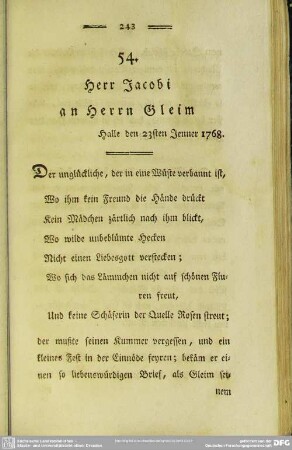 243
54.
Herr Jacobi
an Herrn Gleim
Halle den 23sten Jenner 1768.
Der unglückliche, der in eine Wüste verbannt ist,
Wo ihm kein Freund die Hände drückt
Kein Mädchen zärtlich nach ihm blickt,
Wo wilde unbeblümte Hecken
Nicht einen Liebesgott verstecken;
Wo sich das Lämmchen nicht auf schönen Flu-
ren freut,
Und keine Schäferin der Quelle Rosen streut;
der mußte seinen Kummer vergessen, und ein
kleines Fest in der Einöde feyren; bekäm er ei-
nen so liebenswürdigen Brief, als Gleim sei-
nem